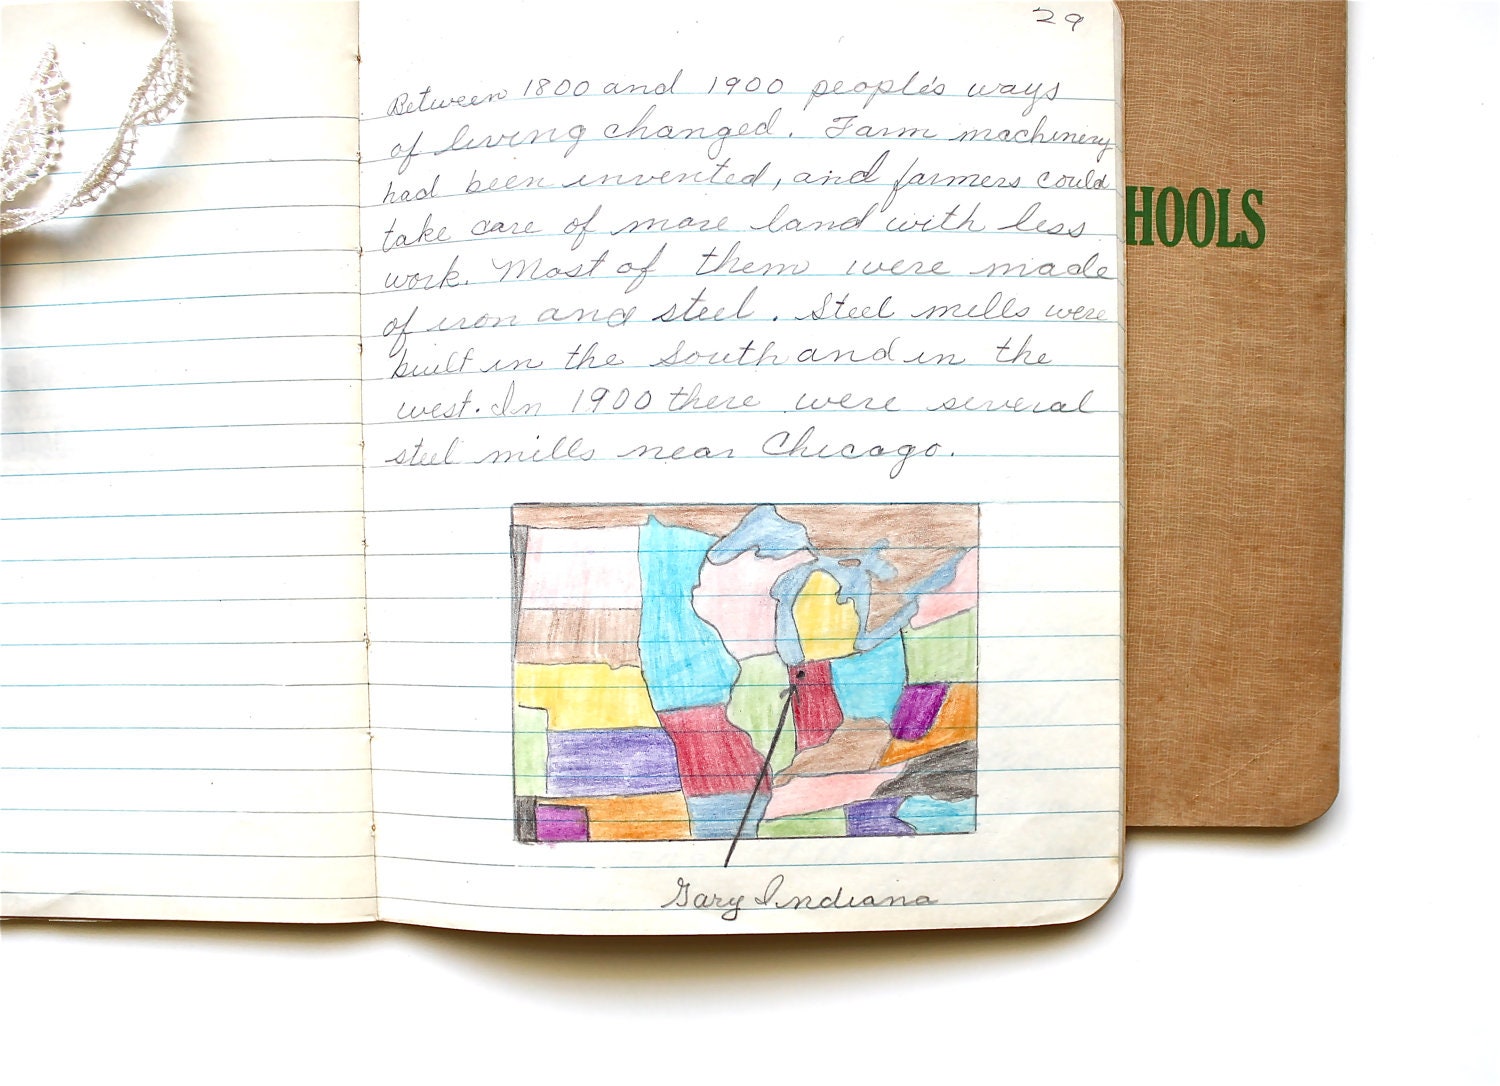 29
Between 1800 and 1900 people's ways
of living changed. Farm machinery
had been invented, and farmers could
take care of more land with less
work. Most of them were made
of iron and steel. Steel mills were
built in the South and in the
west. In 1900 there were several
steel mills near Chicago.
Gary Indiana
HOOLS